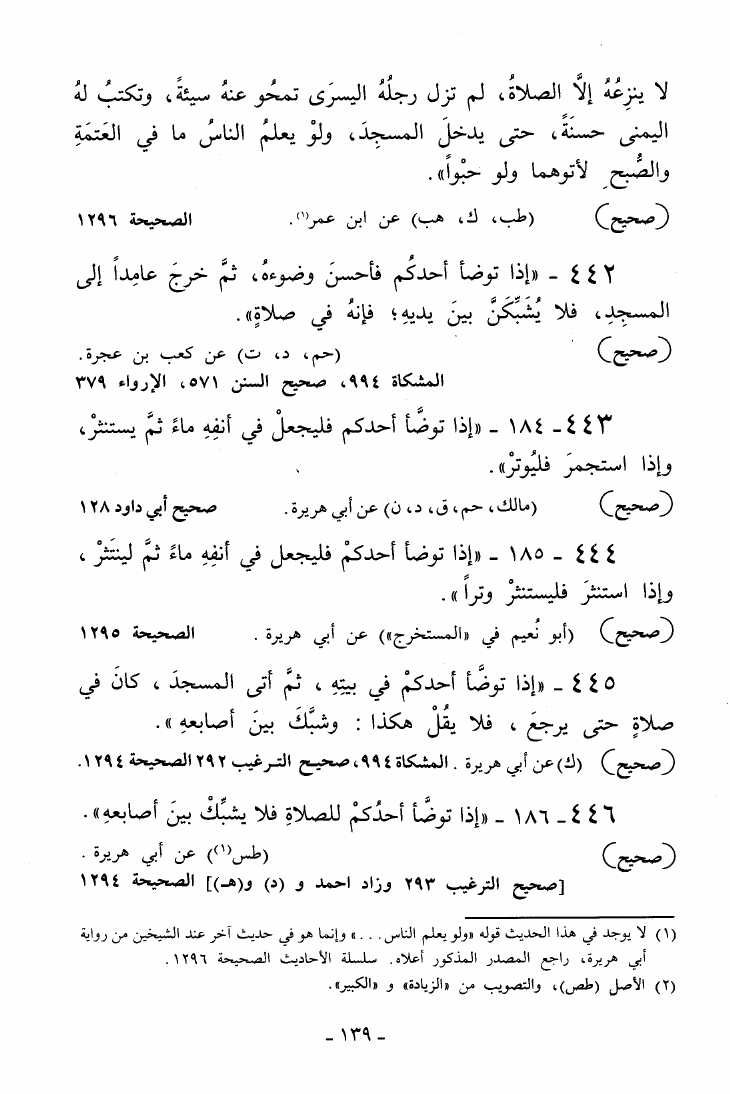 لا ينزِعُهُ إلَّا الصلاةُ، لم تزل رجلُهُ اليسرَى تمحُو عنهُ سيئةً، وتكتبُ لهُ
اليمنى حسنَةً، حتى يدخلَ المسجِدَ، ولوْ يعلمُ الناسُ ما في العَتمَةِ
والصُّبحِ لأتوهما ولو حبْواً».
(صحيح) (طب، ك، هب) عن ابن عمر(١). الصحيحة ١٢٩٦
٤٤٢ - «إذا توضأ أحدكُم فأحسنَ وضوءهُ، ثمَّ خرجَ عامِداً إلى
المسجِدِ، فلا يُشَبِّكَنَّ بينَ يديهِ؛ فإنهُ في صلاةٍ».
(صحيح) (حم، د، ت) عن كعب بن عجرة.
المشكاة ٩٩٤، صحيح السنن ٥٧١، الإرواء ٣٧٩
٤٤٣ - ١٨٤ - «إذا توضَّأ أحدكم فليجعلْ في أنفِهِ ماءً ثمَّ يستنثرْ،
وإذا استجمرَ فليُوترْ».
(صحيح) (مالك، حم، ق، د، ن) عن أبي هريرة. صحيح أبي داود ١٢٨
٤٤٤ - ١٨٥ - «إذا توضأ أحدكمْ فليجعل في أنفِهِ ماءً ثمَّ لينتَثرْ ،
وإذا استنثرَ فليستنثرْ وتراً».
(صحيح) (أبو نُعيم في «المستخرج») عن أبي هريرة . الصحيحة ١٢٩٥
٤٤٥ - «إذا توضَّأ أحدكمْ في بيتِهِ ، ثمَّ أتى المسجدَ ، كانَ في
صلاةٍ حتى يرجعَ ، فلا يقُلْ هكذا : وشبَّكَ بينَ أصابعهِ ».
(صحيح) (ك) عن أبي هريرة . المشكاة ٩٩٤، صحيح الترغيب ٢٩٢ الصحيحة ١٢٩٤.
٤٤٦ - ١٨٦ - «إذا توضَّأ أحدُكمْ للصلاةِ فلا يشبِّكْ بينَ أصابعهِ».
(صحيح) (طس(١)) عن أبي هريرة .
[صحيح الترغيب ٢٩٣ وزاد احمد و (د) و(هـ)] الصحيحة ١٢٩٤
(١) لا يوجد في هذا الحديث قوله «ولو يعلم الناس. . .» وإنما هو في حديث آخر عند الشيخين من رواية
أبي هريرة، راجع المصدر المذكور أعلاه. سلسلة الأحاديث الصحيحة ١٢٩٦.
(٢) الأصل (طص)، والتصويب من «الزيادة» و «الكبير».
- ١٣٩ -